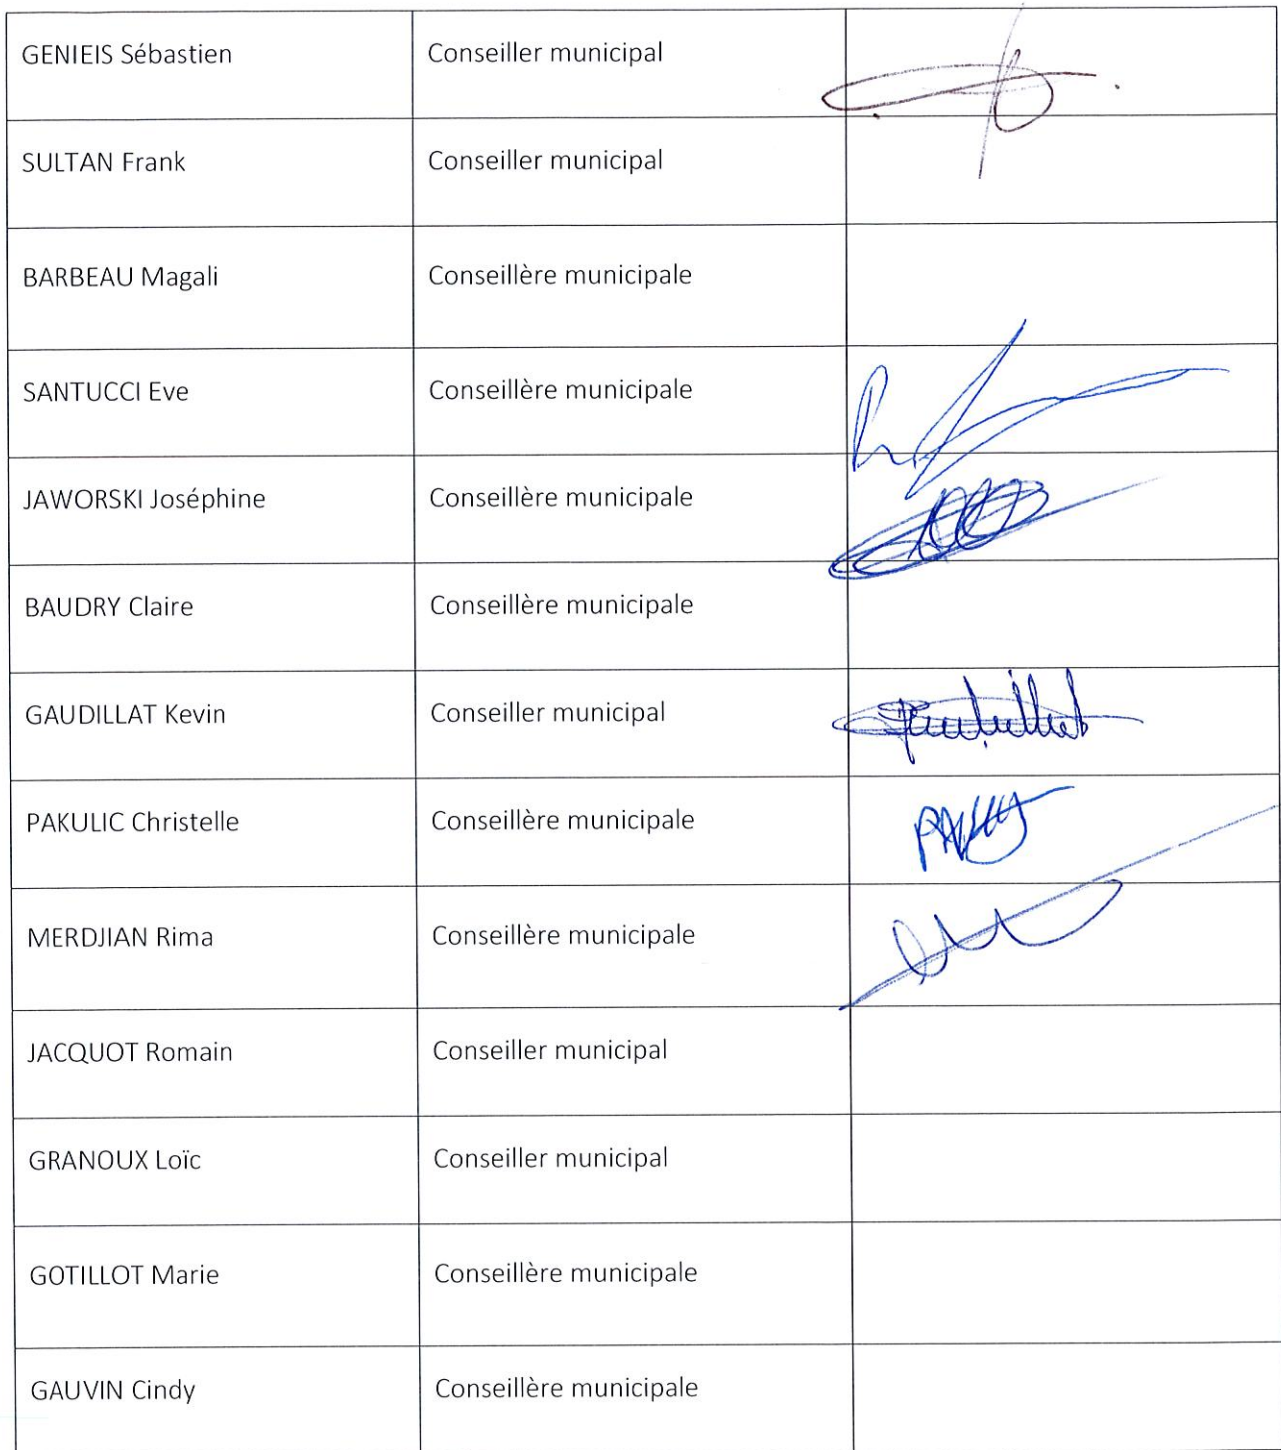 GENIEIS Sébastien Conseiller municipal
SULTAN Frank Conseiller municipal
BARBEAU Magali Conseillère municipale
SANTUCCI Eve Conseillère municipale
JAWORSKI Joséphine Conseillère municipale
BAUDRY Claire Conseillère municipale
GAUDILLAT Kevin Conseiller municipal
PAKULIC Christelle Conseillère municipale
MERDJIAN Rima Conseillère municipale
JACQUOT Romain Conseiller municipal
GRANOUX Loïc Conseiller municipal
GOTILLOT Marie Conseillère municipale
GAUVIN Cindy Conseillère municipale